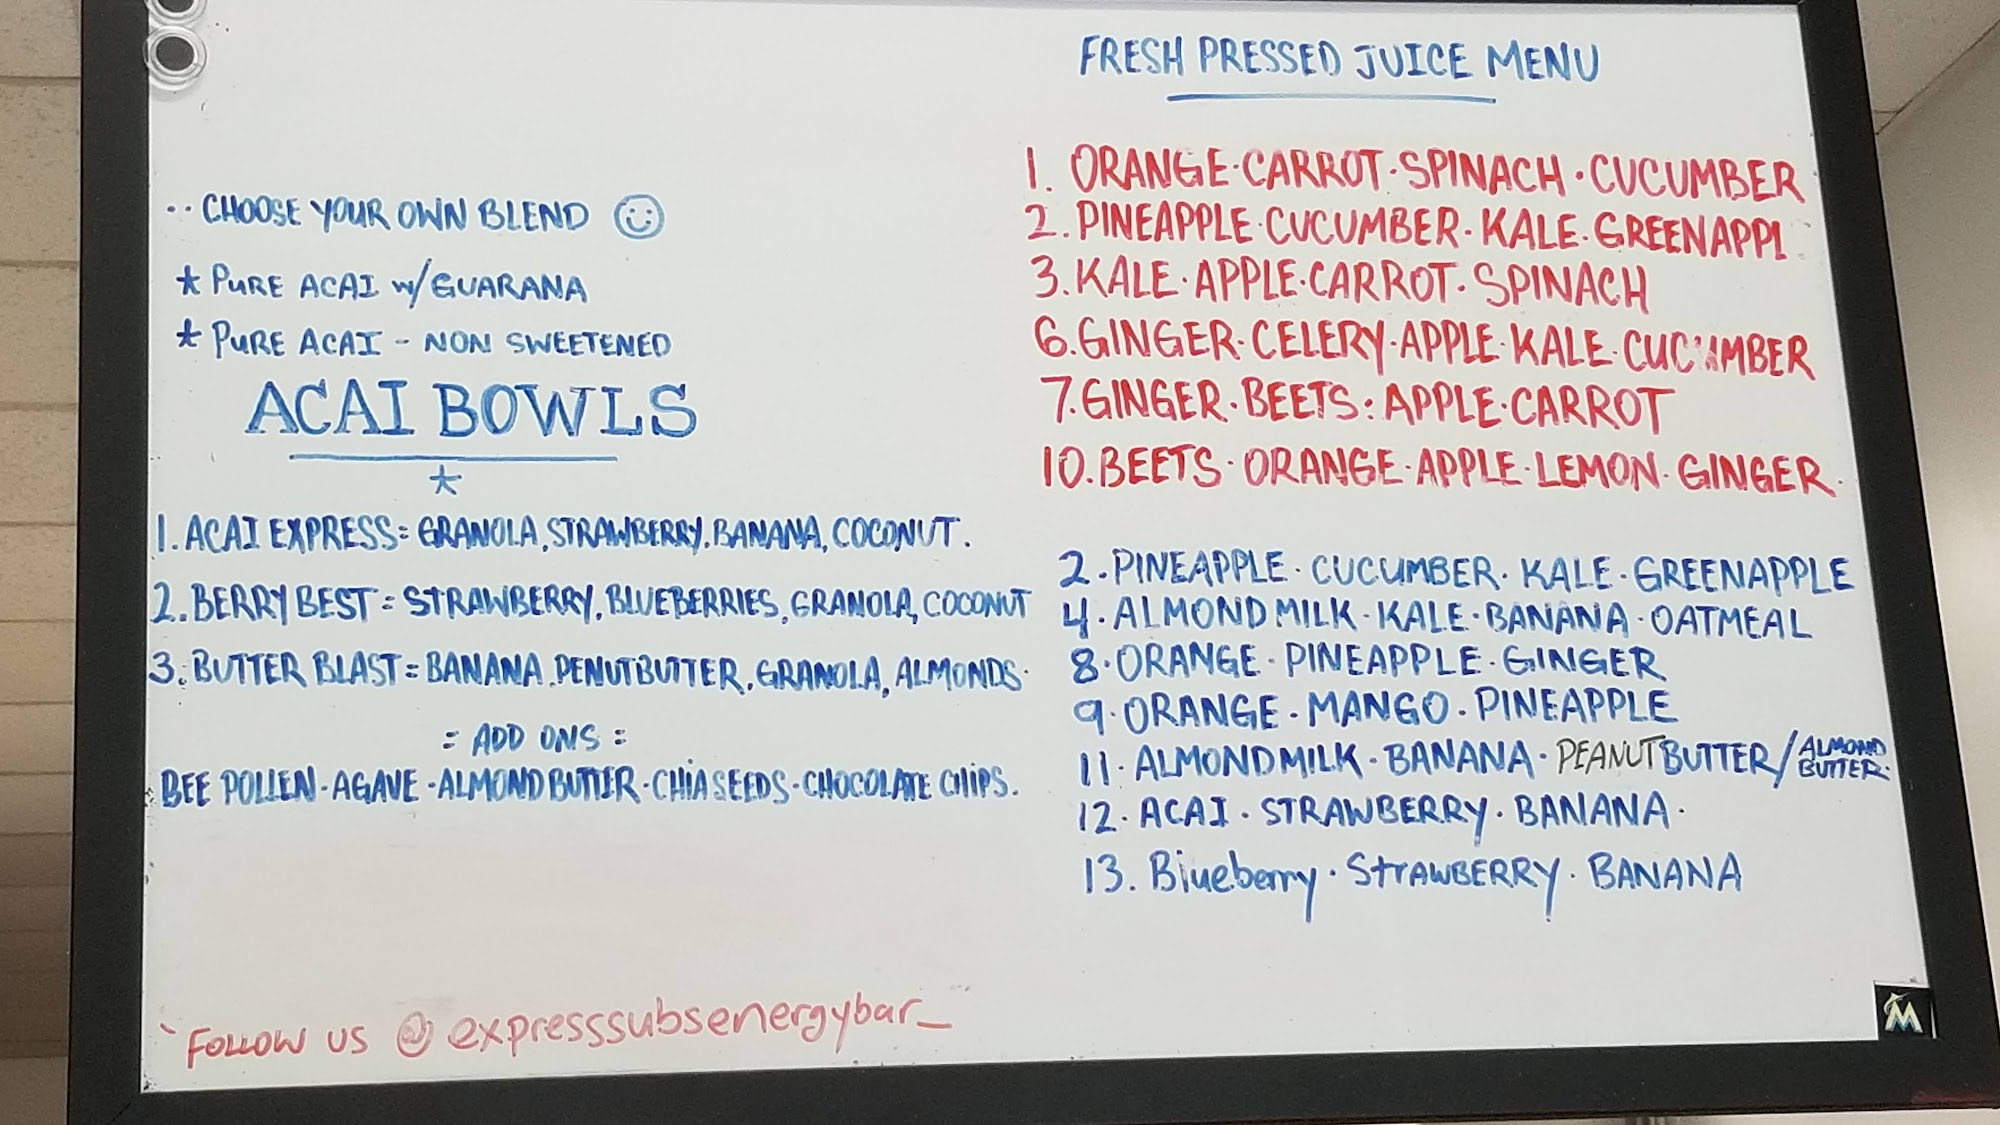 ·· CHOOSE YOUR OWN BLEND ☺
* PURE ACAI w/GUARANA
* PURE ACAI - NON SWEETENED
ACAI BOWLS
*
1. ACAI EXPRESS= GRANOLA, STRAWBERRY, BANANA, COCONUT.
2. BERRY BEST = STRAWBERRY, BLUEBERRIES, GRANOLA, COCONUT
3. BUTTER BLAST = BANANA, PENUTBUTTER, GRANOLA, ALMONDS.
= ADD ONS =
BEE POLLEN · AGAVE · ALMOND BUTTER · CHIA SEEDS · CHOCOLATE CHIPS.
FOLLOW US @ expresssubsenergybar_
FRESH PRESSED JUICE MENU
1. ORANGE · CARROT · SPINACH · CUCUMBER
2. PINEAPPLE · CUCUMBER · KALE · GREENAPPL
3. KALE · APPLE · CARROT · SPINACH
6. GINGER · CELERY · APPLE · KALE · CUCUMBER
7. GINGER · BEETS : APPLE · CARROT
10. BEETS · ORANGE · APPLE · LEMON · GINGER.
2. PINEAPPLE · CUCUMBER · KALE · GREENAPPLE
4. ALMOND MILK · KALE · BANANA · OATMEAL
8. ORANGE · PINEAPPLE · GINGER
9. ORANGE · MANGO · PINEAPPLE
11. ALMOND MILK · BANANA · PEANUT BUTTER / ALMOND BUTTER.
12. ACAI · STRAWBERRY · BANANA ·
13. Blueberry · STRAWBERRY · BANANA
M